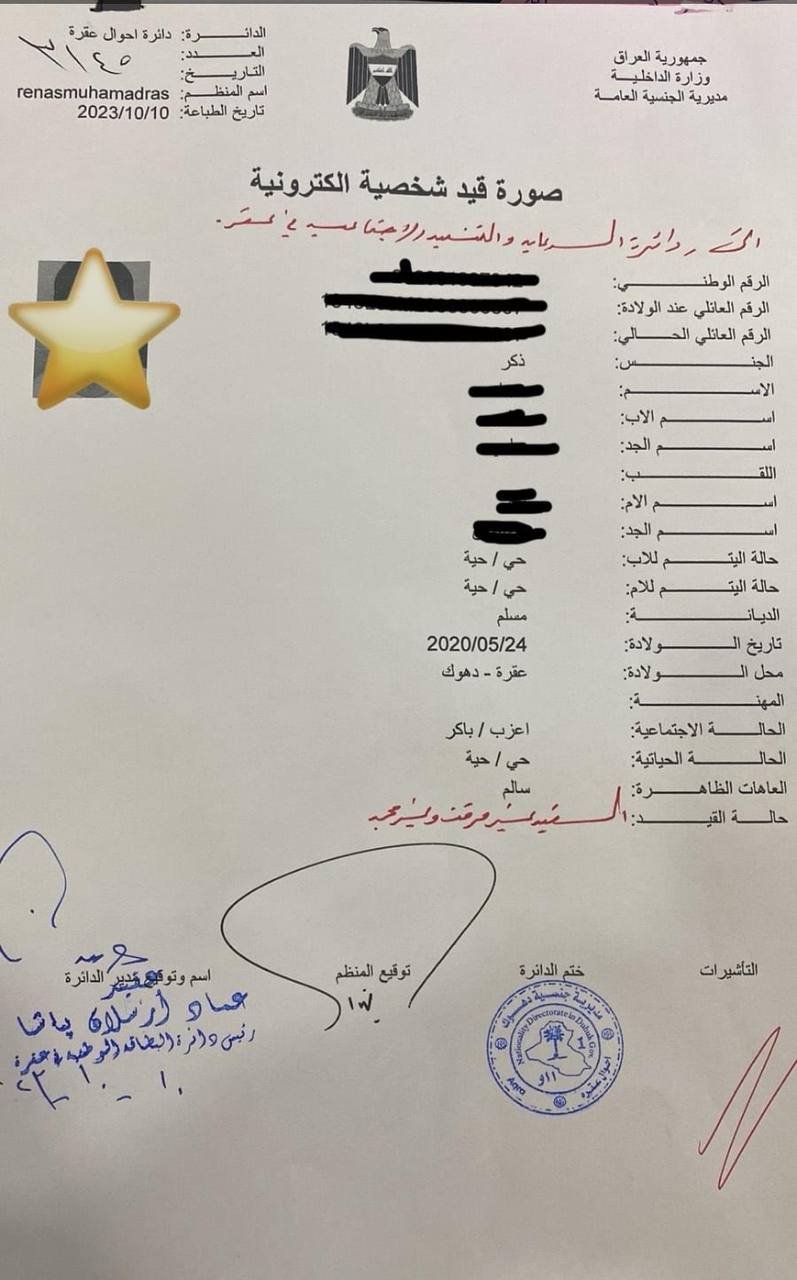 جمهورية العراق
وزارة الداخلية
مديرية الجنسية العامة
الدائرة: دائرة احوال عقرة
العدد:
التاريخ:
اسم المنظم: renasmuhamadras
تاريخ الطباعة: 2023/10/10
صورة قيد شخصية الكترونية
الى / دائرة الرعاية الاجتماعية في عقرة.
الرقم الوطني:
الرقم العائلي عند الولادة:
الرقم العائلي الحالي:
الجنس: ذكر
الاسم:
اسم الاب:
اسم الجد:
اللقب:
اسم الام:
اسم الجد:
حالة اليتم للاب: حي / حية
حالة اليتم للام: حي / حية
الديانة: مسلم
تاريخ الولادة: 2020/05/24
محل الولادة: عقرة - دهوك
المهنة:
الحالة الاجتماعية: اعزب / باكر
الحالة الحياتية: حي / حية
العاهات الظاهرة: سالم
حالة القيد: القيد غير مرقن وغير مجمد
التأشيرات
ختم الدائرة
توقيع المنظم
اسم وتوقيع مدير الدائرة
عماد أرسلان پاشا
رئيس دائرة البطاقة الوطنية في عقرة
مديرية جنسية دهوك
Nationality Directorate in Duhok Gov.
احوال عقره
Aqra